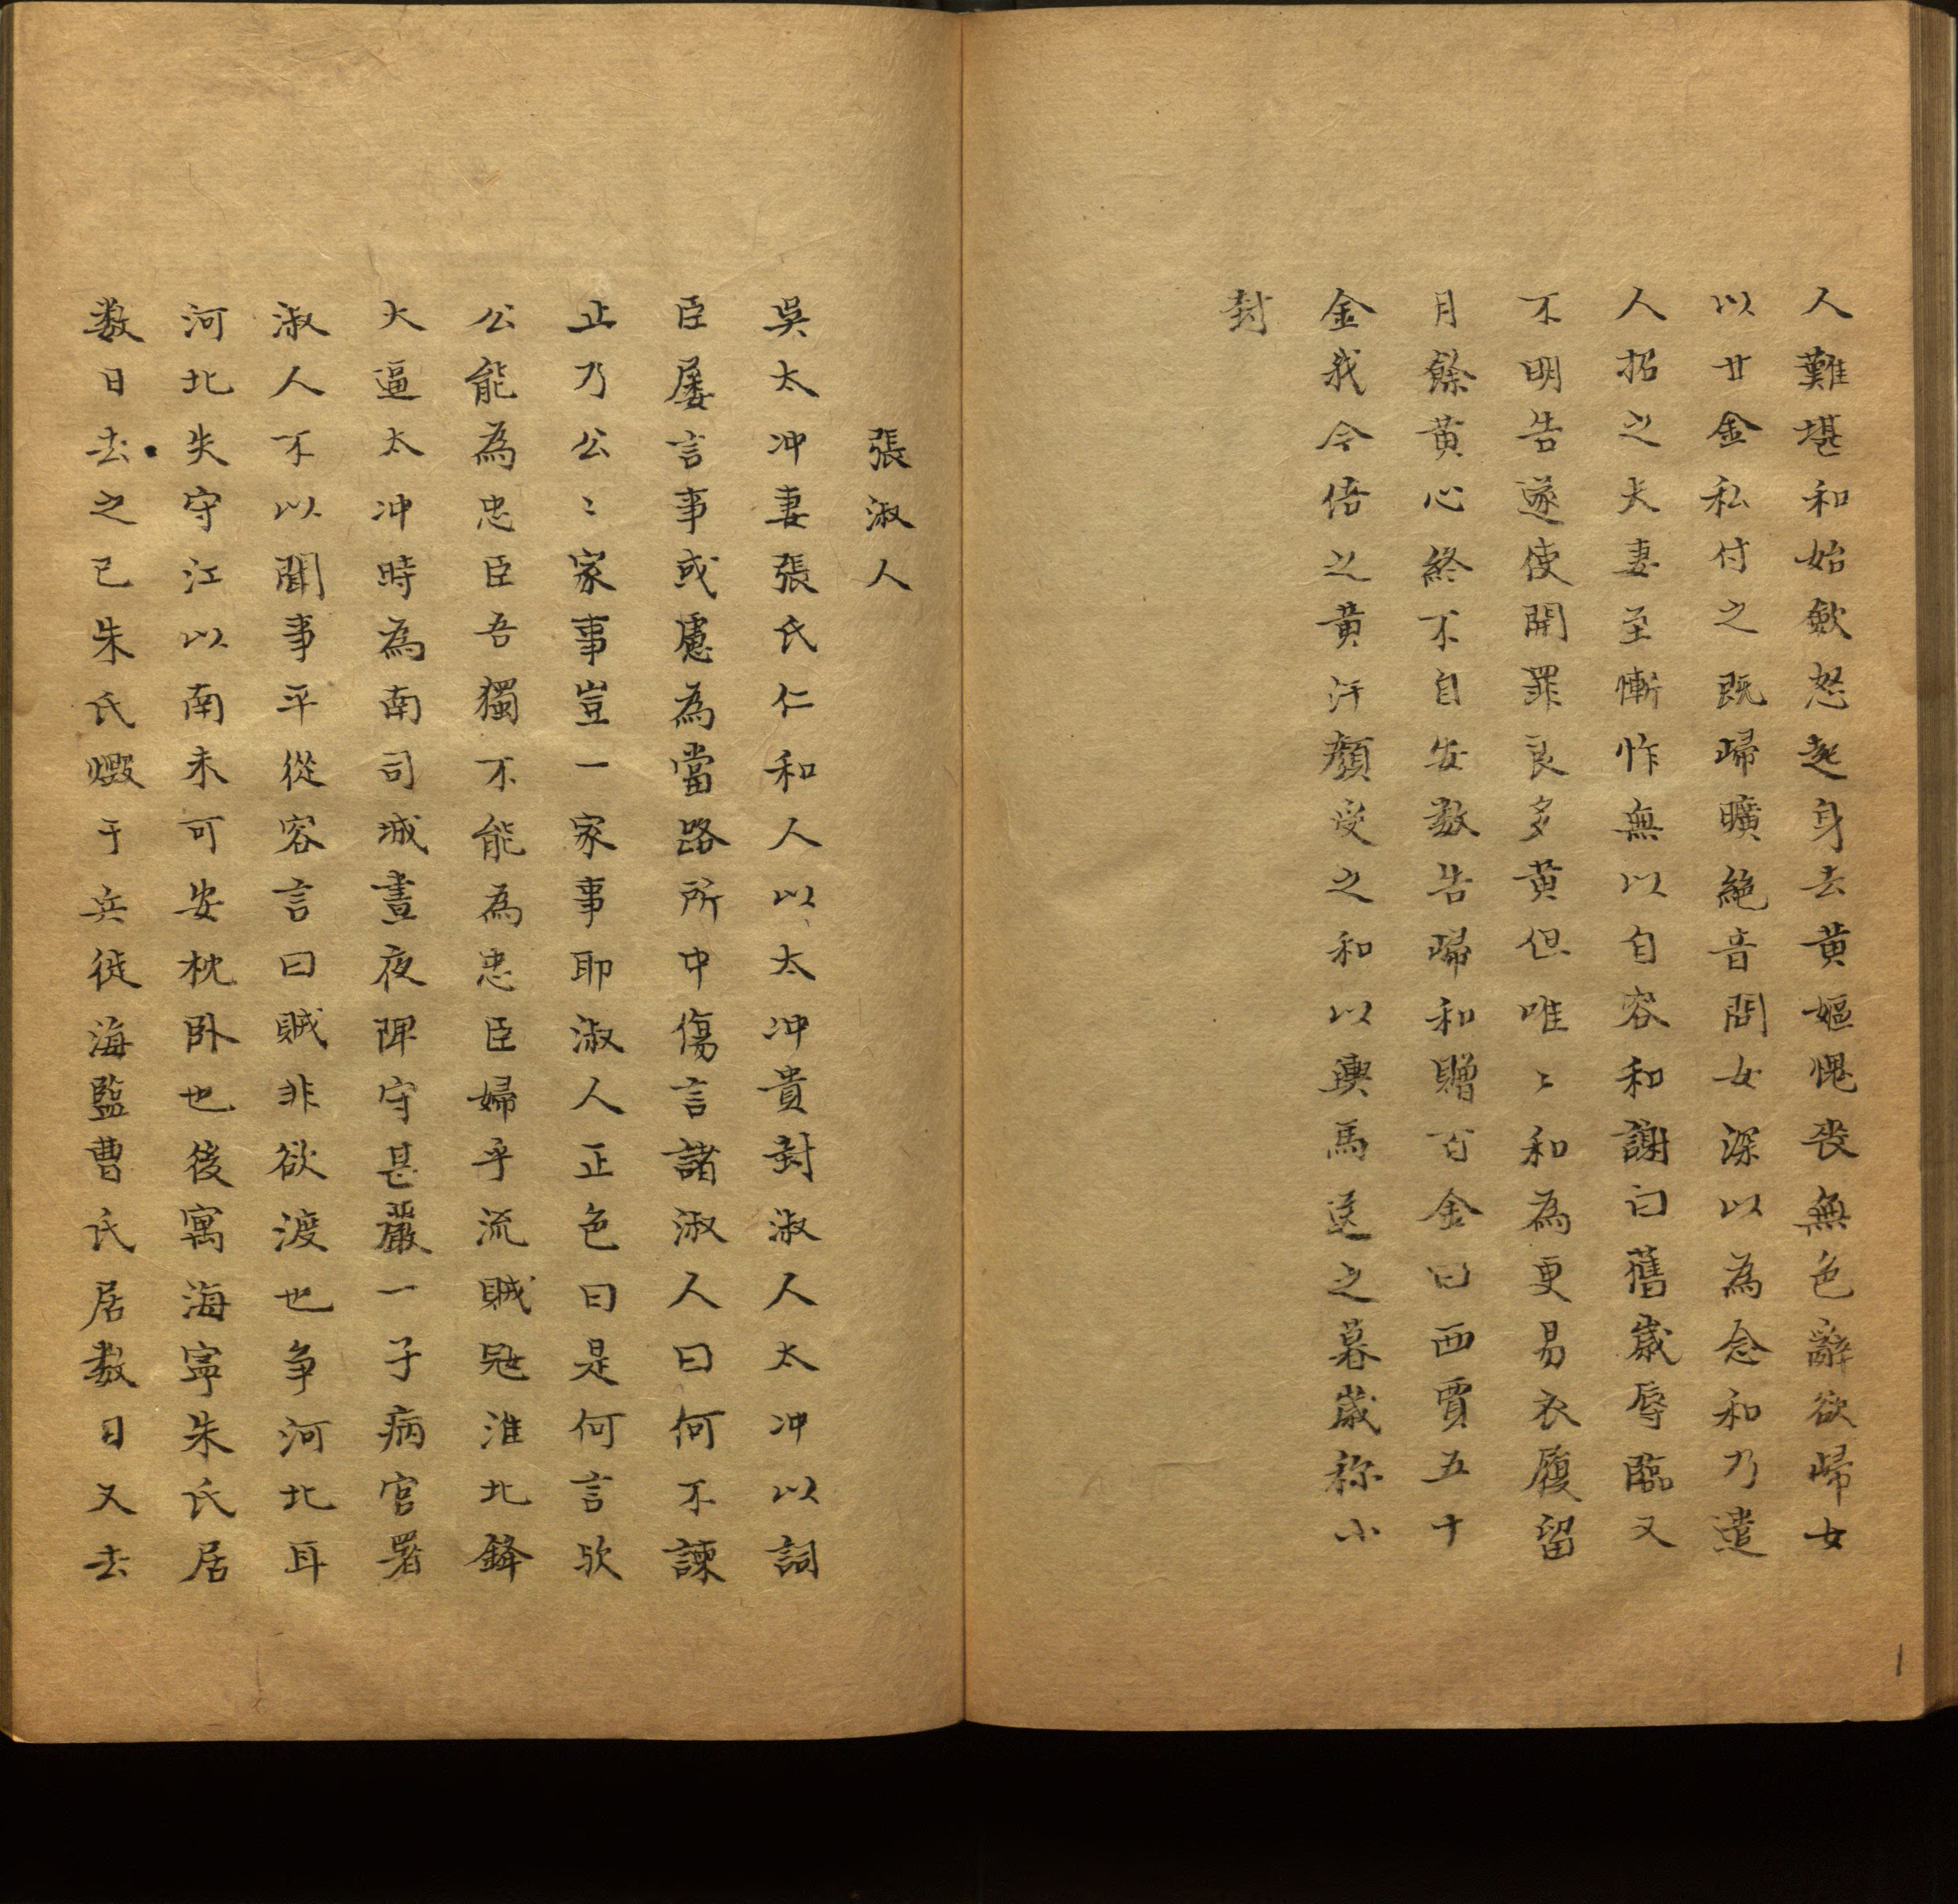 人難堪和始歛怒起身去黄嫗愧喪無色辭欲歸女
以廿金私付之既歸曠絶音問女深以為念和乃遣
人招之夫妻至慚怍無以自容和謝曰舊歲辱臨又
不明告遂使開罪良多黄但唯〻和為更易衣履留
月餘黄心終不自安数告歸和贈百金曰西賈五十
金我今倍之黄汗顔受之和以輿馬送之暮歲稱小
封
張淑人
吳太冲妻張氏仁和人以太冲貴封淑人太冲以詞
臣屡言事或慮為當路所中傷言諸淑人曰何不諫
止乃公〻家事豈一家事耶淑人正色曰是何言欤
公能為忠臣吾獨不能為忠臣婦乎流賊冦淮北鋒
大逼太冲時為南司城晝夜陴守甚嚴一子病官署
淑人不以聞事平從容言曰賊非欲渡也争河北耳
河北失守江以南未可安枕卧也後寓海寧朱氏居
数日去之已朱氏燬于兵徙海監曹氏居数日又去